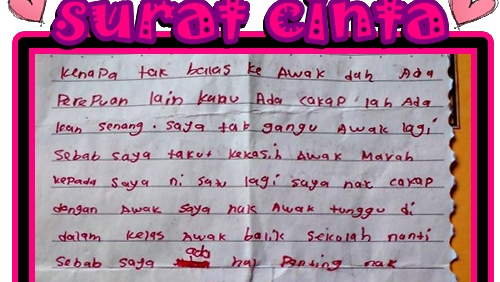 surat cinta
kenapa tak balas ke Awak dah Ada
Perempuan lain kalau Ada cakap lah Ada
kan senang. saya tak gangu Awak lagi
Sebab saya takut kekasih Awak Marah
kepada saya ni satu lagi saya nak cakap
dengan Awak saya nak Awak tunggu di
dalam kelas Awak balik sekolah nanti
Sebab saya ada hal Penting nak